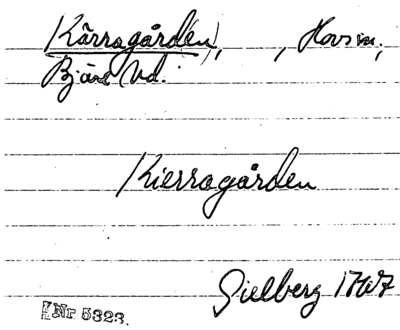 Kärragården, , Hovs sn,
Bjäre hd.
Kierragården
Gielberg 1767
Nr 5323.